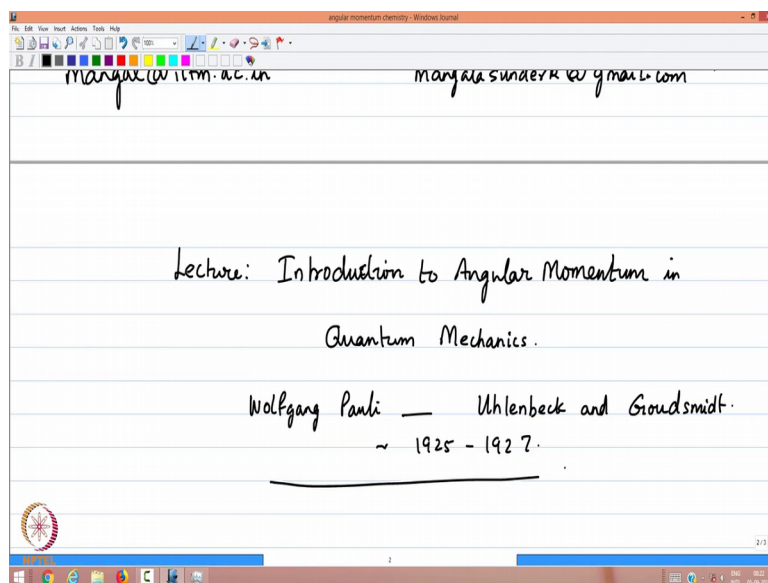 angular momentum chemistry - Windows Journal
File Edit View Insert Actions Tools Help
100%
B I
mangal@iitm.ac.in mangalasunderk@gmail.com
Lecture: Introduction to Angular Momentum in
Quantum Mechanics.
Wolfgang Pauli — Uhlenbeck and Goudsmidt.
~ 1925 - 1927.
2/3
NPTEL
2
ENG